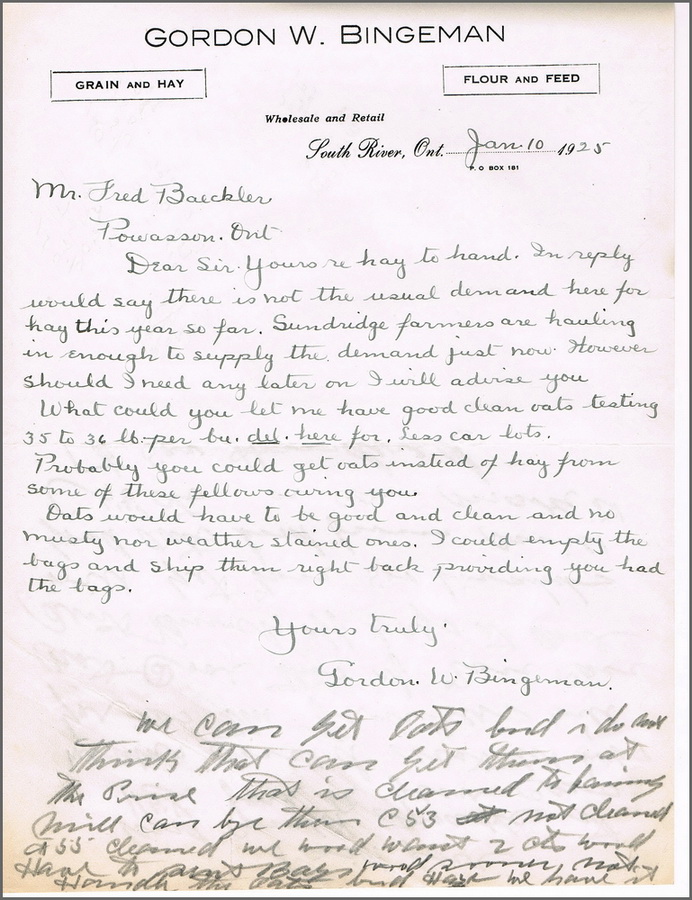 GORDON W. BINGEMAN
GRAIN AND HAY
FLOUR AND FEED
Wholesale and Retail
South River, Ont. Jan. 10 1925
P. O BOX 181
Mr. Fred Baeckler
Powasson. Ont
Dear Sir. Yours re hay to hand. In reply
would say there is not the usual demand here for
hay this year so far. Sundridge farmers are hauling
in enough to supply the demand just now. However
should I need any later on I will advise you
What could you let me have good clean oats testing
35 to 36 lb. per bu. del. here for. Less car lots.
Probably you could get oats instead of hay from
some of these fellows owing you.
Oats would have to be good and clean and no
musty nor weather stained ones. I could empty the
bags and ship them right back providing you had
the bags.
Yours truly.
Gordon. W. Bingeman.
we can get Oats but i do not
think that can get them at
the Prise that is cleaned to faning
mill can bye them c 53 not cleaned
55 cleaned we wood want 2 cts wood
Have to Bags wood sooner not
Handle the oats but Hay we have it